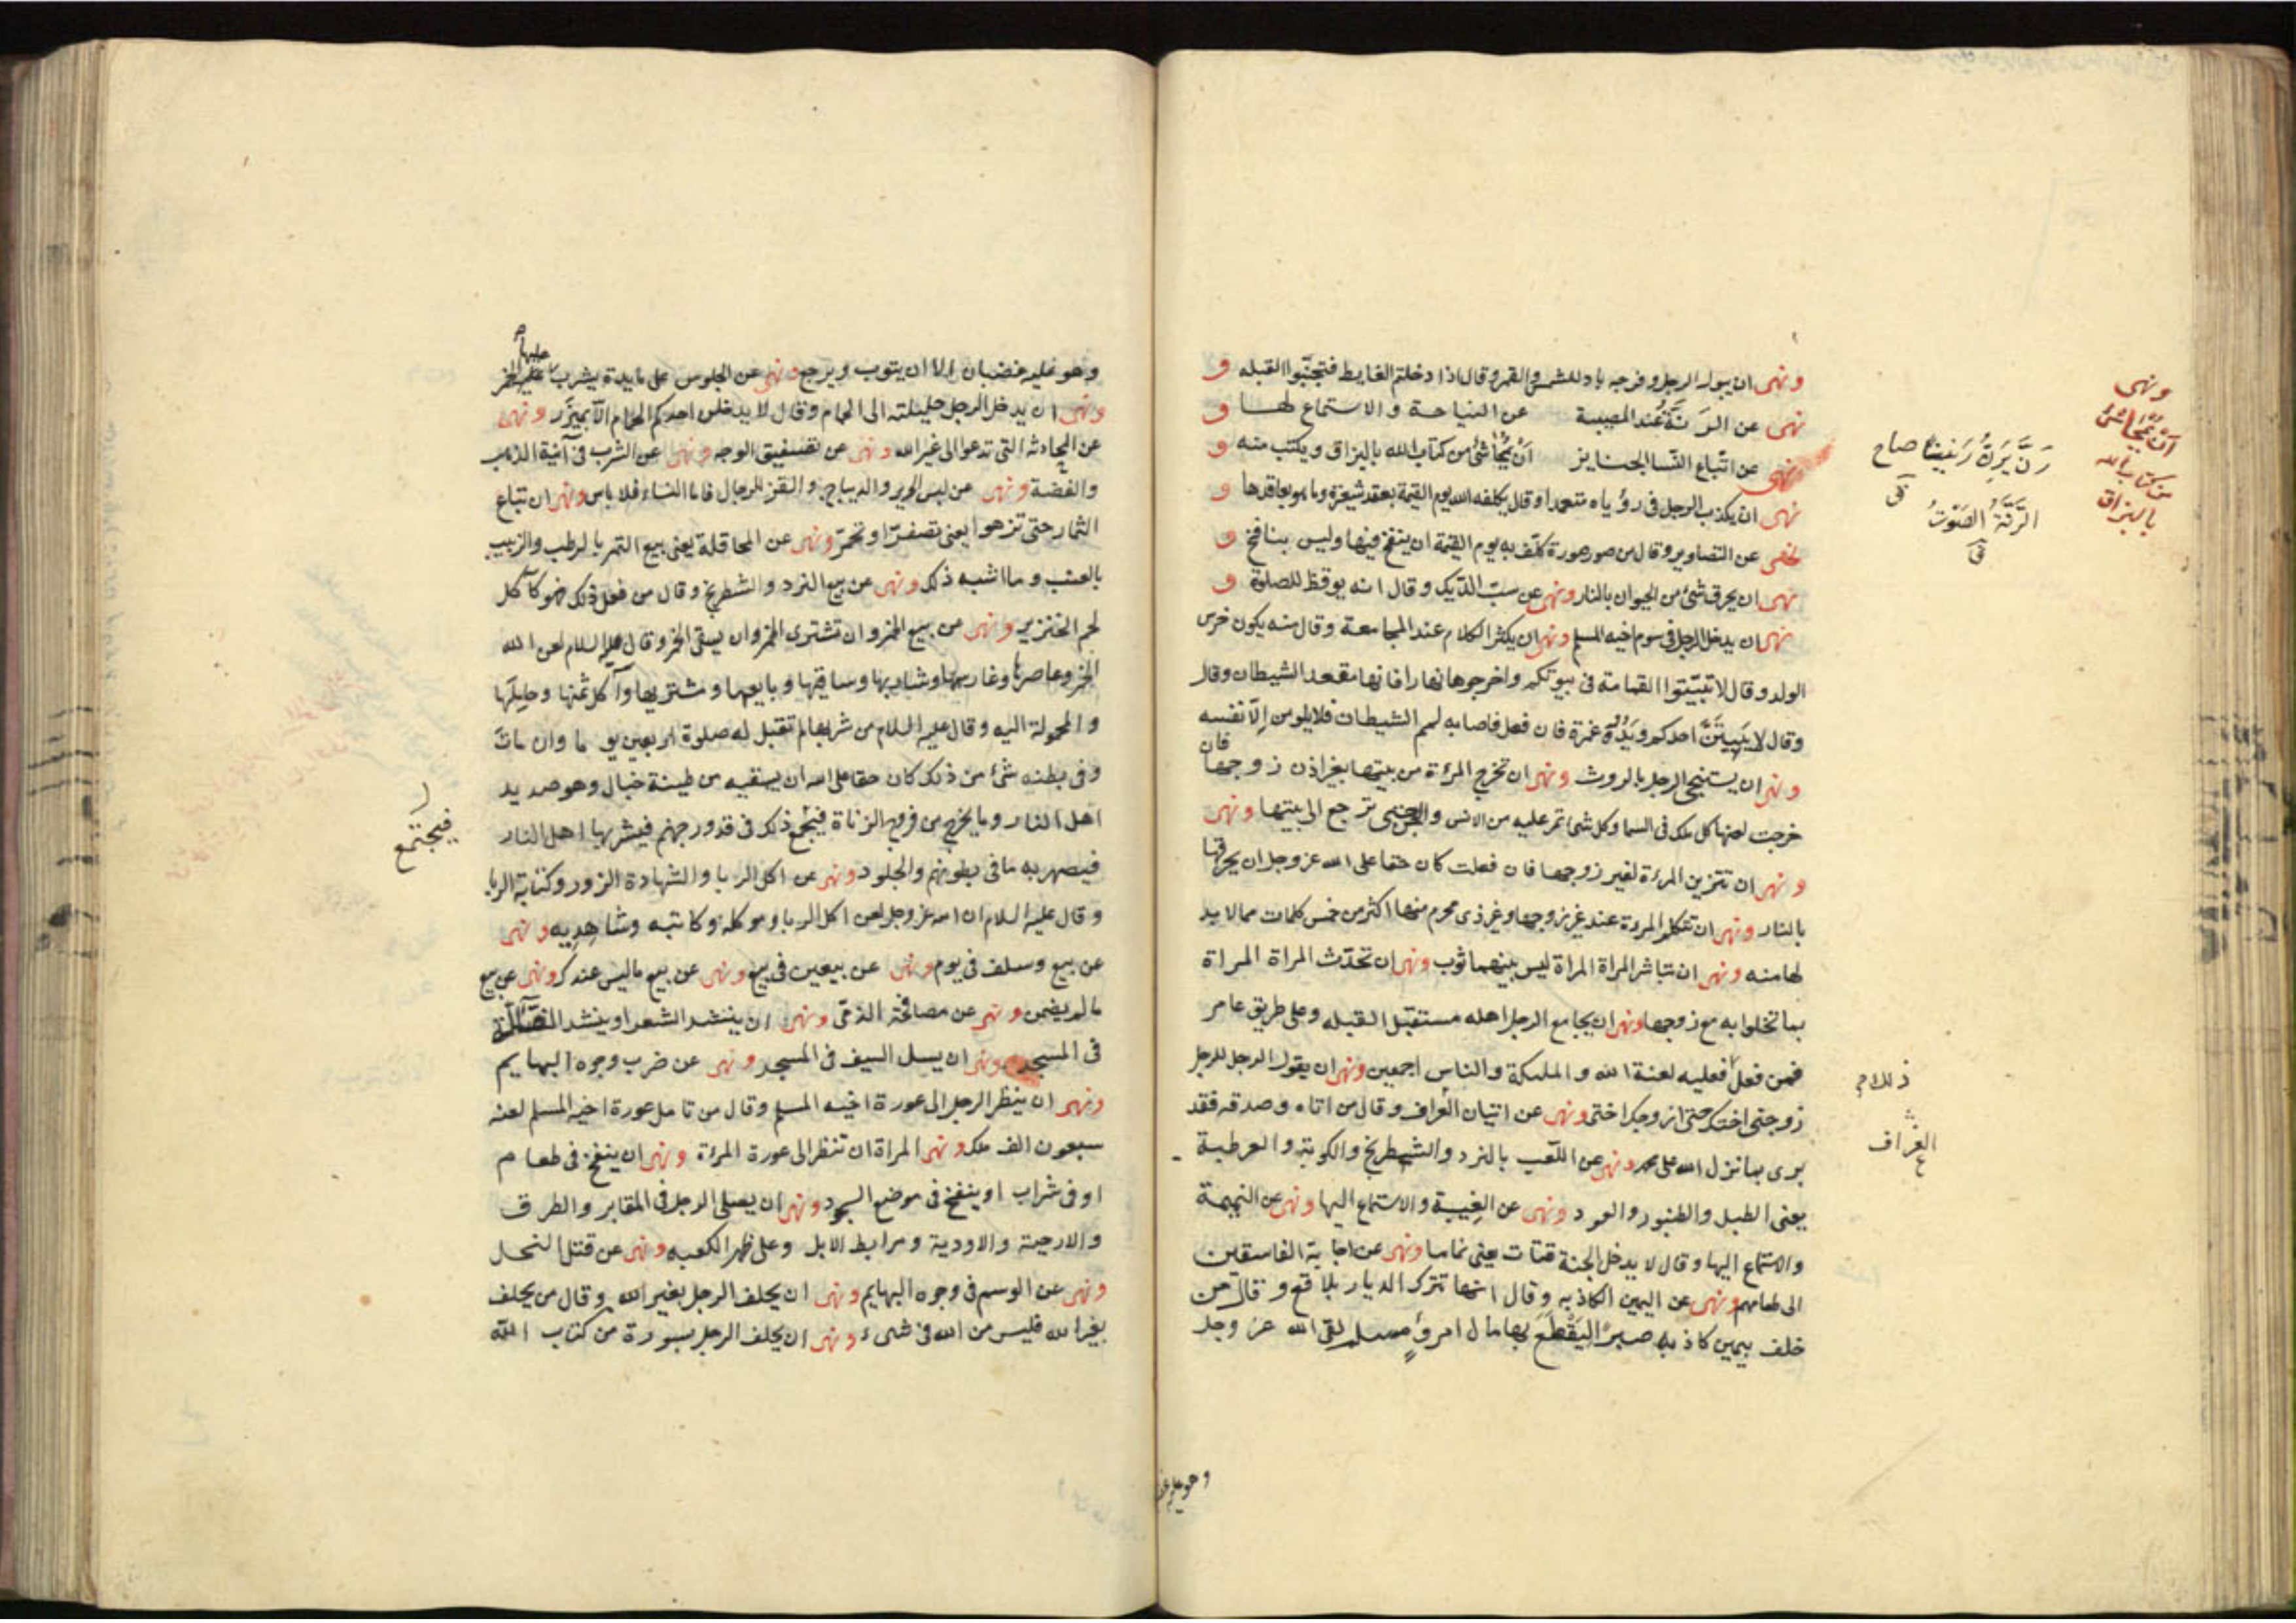 ونهى ان يبول الرجل وفرجه باد للشمس والقمر وقال اذا دخلتم الغايط فتجنبوا القبله و
نهى عن الرَنَّة عند المصيبة عن النياحة والاستماع لها و
نهى عن اتباع النسا الجنايز أنْ يُمْحا شئ من كتاب الله بالبزاق ويكتب منه و
نهى ان يكذب الرجل في رؤياه متعمدا وقال يكلفه الله يوم القيمة بعقد شعيرة وما هو بعاقدها و
نهى عن التصاوير وقال من صور صورة كلّف به يوم القيمة ان ينفخ فيها وليس بنافخ و
نهى ان يحرق شئ من الحيوان بالنار ونهى عن سبّ الدّيك وقال انه يوقظ للصلوة و
نهى ان يدخل الرجل في سوم اخيه المسلم ونهى ان يكثر الكلام عند المجامعة وقال منه يكون خرس
الولد وقال لا تبيّتوا القمامة في بيوتكم واخرجوها نهارا فانها مقعد الشيطان وقال
وقال لا يَبِيتَنَّ احدكم ويَدُه غمرة فان فعل فاصابه لمم الشيطان فلا يلومن إلّا نفسه
ونهى ان يستنجى الرجل بالروث ونهى ان تخرج المرءة من بيتها بغير اذن زوجها فان
خرجت لعنها كل ملك في السما وكل شئ تمر عليه من الانس والجن حتى ترجع الى بيتها ونهى
ونهى ان تتزين المرءة لغير زوجها فان فعلت كان حقا على الله عز وجل ان يحرقها
بالنار ونهى ان تتكلم المرءة عند غير زوجها وغير ذى محرم منها اكثر من خمس كلمات مما لا بد
لها منه ونهى ان تباشر المراة المراة ليس بينهما ثوب ونهى ان تحدّث المراة المراة
بما تخلوا به مع زوجها ونهى ان يجامع الرجل اهله مستقبل القبله وعلى طريق عامر
فمن فعل فعليه لعنة الله والملئكة والناس اجمعين ونهى ان يقول الرجل للرجل
زوجنى اختك حتى ازوجك اختى ونهى عن اتيان العراف وقال من اتاه وصدقه فقد
برى بما نزل الله على محمد ونهى عن اللّعب بالنرد والشطرنج والكوبة والعرطبة
يعنى الطبل والطنبور والعود ونهى عن الغِيبة والاستماع اليها ونهى عن النميمة
والاستماع اليها وقال لا يدخل الجنة قتات يعنى نماما ونهى عن اجابة الفاسقين
الى طعامهم ونهى عن اليمين الكاذبه وقال انها تترك الديار بلاقع وقال من
خلف بيمين كاذبه صبرًا ليَقْطَعَ بها مال امرئٍ مسلم لقى الله عز وجل
ونهى
أنْ يُمْحا شئ
من كتاب الله
بالبزاق
رَنَّ يَرِنُّ رَنِينًا صاح
الرَّنَّةُ الصَوْتُ
العَرّاف
وهو عليه غضبان الا ان يتوب ويرجع ونهى عن الجلوس على مايدة يشرب عليها الخمر
ونهى ان يدخل الرجل حليلته الى الحمام وقال لا يدخلن احدكم الحمام الّا بميزر ونهى
عن المحادثه التى تدعوا الى غير الله ونهى عن تصفيق الوجه ونهى عن الشرب في آنية الذهب
والفضة ونهى عن لبس الحرير والديباج والقز للرجال فاما النساء فلا باس ونهى ان تباع
الثمار حتى تزهوا يعنى تصفرّ او تحمرّ ونهى عن المحاقلة يعنى بيع التمر بالرطب والزبيب
بالعنب وما اشبه ذلك ونهى عن بيع النرد والشطرنج وقال من فعل ذلك فهو كآكل
لحم الخنزير ونهى من بيع الخمر وان تشترى الخمر وان يسقى الخمر وقال عليه السلام لعن الله
الخمر وعاصرها وغارسها وشاربها وساقيها وبايعها ومشتريها وآكل ثمنها وحاملها
والمحمولة اليه وقال عليه السلام من شربها لم تقبل له صلوة اربعين يوما وان مات
وفي بطنه شئ من ذلك كان حقا على الله ان يسقيه من طينة خبال وهو صديد
اهل النار وما يخرج من فروج الزناة فيجمع ذلك في قدور جهنم فيشربها اهل النار
فيصهر به ما في بطونهم والجلود ونهى عن اكل الربا والشهادة الزور وكتابة الربا
وقال عليه السلام ان الله عز وجل لعن اكل الربا وموكله وكاتبه وشاهديه ونهى
عن بيع وسلف في يوم ونهى عن بيعين في بيع ونهى عن بيع ماليس عندك ونهى عن بيع
مالم يضمن ونهى عن مصافحة الذمّى ونهى ان ينشد الشعر او ينشد الضالّة
في المسجد ونهى ان يسل السيف في المسجد ونهى عن ضرب وجوه البهايم
ونهى ان ينظر الرجل الى عورة اخيه المسلم وقال من تامل عورة اخيه المسلم لعنه
سبعون الف ملك ونهى المراة ان تنظر الى عورة المرءة ونهى ان ينفخ في طعام
او في شراب او ينفخ في موضع السجود ونهى ان يصلى الرجل في المقابر والطرق
والارحية والاودية ومرابط الابل وعلى ظهر الكعبه ونهى عن قتل النحل
ونهى عن الوسم في وجوه البهايم ونهى ان يحلف الرجل بغير الله وقال من يحلف
بغير الله فليس من الله في شىء ونهى ان يحلف الرجل بسورة من كتاب الله
فيجتمع